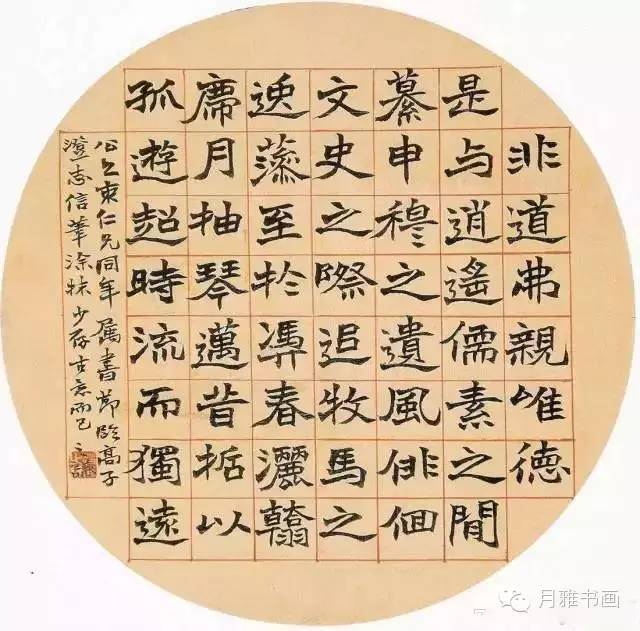 非道弗親唯德
是与逍遙儒素之間
纂申穆之遺風俳佪
文史之際追牧馬之
逸藻至於馮春灑翰
席月抽琴邁昔哲以
孤遊超時流而獨遠
仁兄同年 属書節臨高子
澄志信筆涂抹少存古意而已
月雅书画